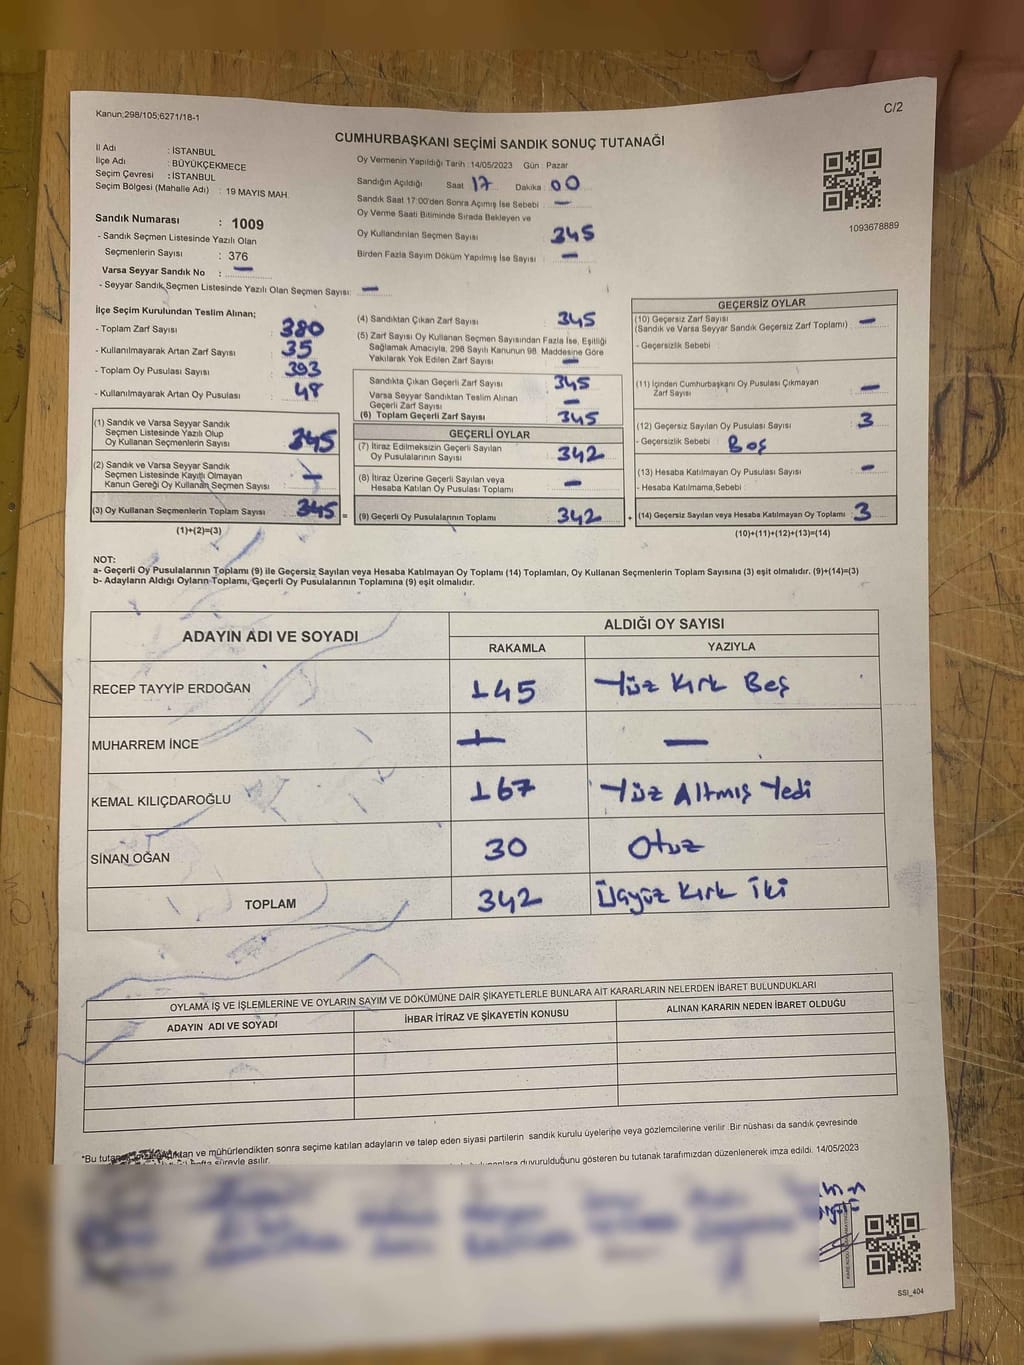 Kanun;298/105;6271/18-1
C/2
CUMHURBAŞKANI SEÇİMİ SANDIK SONUÇ TUTANAĞI
İl Adı : İSTANBUL
İlçe Adı : BÜYÜKÇEKMECE
Seçim Çevresi : İSTANBUL
Seçim Bölgesi (Mahalle Adı) : 19 MAYIS MAH.
Sandık Numarası : 1009
- Sandık Seçmen Listesinde Yazılı Olan
Seçmenlerin Sayısı : 376
Varsa Seyyar Sandık No : —
- Seyyar Sandık Seçmen Listesinde Yazılı Olan Seçmen Sayısı: —
Oy Vermenin Yapıldığı Tarih :14/05/2023 Gün : Pazar
Sandığın Açıldığı Saat 17 Dakika : 00
Sandık Saat 17:00'den Sonra Açımış İse Sebebi : —
Oy Verme Saati Bitiminde Sırada Bekleyen ve
Oy Kullandırılan Seçmen Sayısı 345
Birden Fazla Sayım Döküm Yapılmış İse Sayısı : —
1093678889
İlçe Seçim Kurulundan Teslim Alınan;
- Toplam Zarf Sayısı : 380
- Kullanılmayarak Artan Zarf Sayısı : 35
- Toplam Oy Pusulası Sayısı : 393
- Kullanılmayarak Artan Oy Pusulası : 48
(1) Sandık ve Varsa Seyyar Sandık
Seçmen Listesinde Yazılı Olup
Oy Kullanan Seçmenlerin Sayısı : 345
(2) Sandık ve Varsa Seyyar Sandık
Seçmen Listesinde Kayıtlı Olmayan
Kanun Gereği Oy Kullanan Seçmen Sayısı : —
(3) Oy Kullanan Seçmenlerin Toplam Sayısı : 345 =
(1)+(2)=(3)
(4) Sandıktan Çıkan Zarf Sayısı : 345
(5) Zarf Sayısı Oy Kullanan Seçmen Sayısından Fazla İse, Eşitliği
Sağlamak Amacıyla, 298 Sayılı Kanunun 98. Maddesine Göre
Yakılarak Yok Edilen Zarf Sayısı : —
Sandıkta Çıkan Geçerli Zarf Sayısı : 345
Varsa Seyyar Sandıktan Teslim Alınan
Geçerli Zarf Sayısı : —
(6) Toplam Geçerli Zarf Sayısı : 345
GEÇERLİ OYLAR
(7) İtiraz Edilmeksizin Geçerli Sayılan
Oy Pusulalarının Sayısı : 342
(8) İtiraz Üzerine Geçerli Sayılan veya
Hesaba Katılan Oy Pusulası Toplamı : —
(9) Geçerli Oy Pusulalarının Toplamı : 342 +
GEÇERSİZ OYLAR
(10) Geçersiz Zarf Sayısı
(Sandık ve Varsa Seyyar Sandık Geçersiz Zarf Toplamı) : —
- Geçersizlik Sebebi :
(11) İçinden Cumhurbaşkanı Oy Pusulası Çıkmayan
Zarf Sayısı : —
(12) Geçersiz Sayılan Oy Pusulası Sayısı : 3
- Geçersizlik Sebebi : Boş
(13) Hesaba Katılmayan Oy Pusulası Sayısı : —
- Hesaba Katılmama Sebebi :
(14) Geçersiz Sayılan veya Hesaba Katılmayan Oy Toplamı : 3
(10)+(11)+(12)+(13)=(14)
NOT:
a- Geçerli Oy Pusulalarının Toplamı (9) ile Geçersiz Sayılan veya Hesaba Katılmayan Oy Toplamı (14) Toplamları, Oy Kullanan Seçmenlerin Toplam Sayısına (3) eşit olmalıdır. (9)+(14)=(3)
b- Adayların Aldığı Oyların Toplamı, Geçerli Oy Pusulalarının Toplamına (9) eşit olmalıdır.
ADAYIN ADI VE SOYADI
ALDIĞI OY SAYISI
RAKAMLA YAZIYLA
RECEP TAYYİP ERDOĞAN 145 Yüz Kırk Beş
MUHARREM İNCE — —
KEMAL KILIÇDAROĞLU 167 Yüz Altmış Yedi
SİNAN OĞAN 30 Otuz
TOPLAM 342 Üçyüz Kırk İki
OYLAMA İŞ VE İŞLEMLERİNE VE OYLARIN SAYIM VE DÖKÜMÜNE DAİR ŞİKAYETLERLE BUNLARA AİT KARARLARIN NELERDEN İBARET BULUNDUKLARI
ADAYIN ADI VE SOYADI İHBAR İTİRAZ VE ŞİKAYETİN KONUSU ALINAN KARARIN NEDEN İBARET OLDUĞU
*Bu ve mühürlendikten sonra seçime katılan adayların ve talep eden siyasi partilerin sandık kurulu üyelerine veya gözlemcilerine verilir. Bir nüshası da sandık çevresinde
süreyle asılır.
duyurulduğunu gösteren bu tutanak tarafımızdan düzenlenerek imza edildi. 14/05/2023
SSİ_404